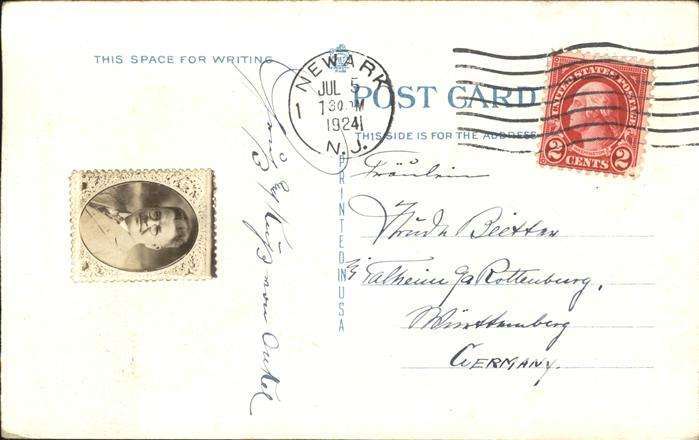 THIS SPACE FOR WRITING
NEWARK
JUL 5
1924
N.J.
1
POST CARD
THIS SIDE IS FOR THE ADDRESS
UNITED STATES POSTAGE
2 CENTS 2
PRINTED IN USA
Fräulein
Trude Bietter
Talheim
Rottenburg,
Württemberg
GERMANY.
von Onkel